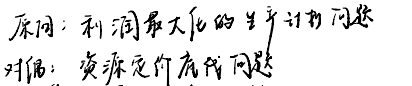 原问：利润最大化的生产计划问题
对偶：资源定价底线问题